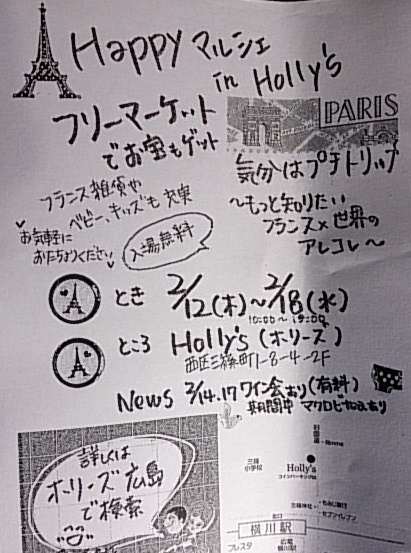 Happy マルシェ
in Holly's
フリーマーケット
でお宝もゲット
PARIS
気分はプチトリップ
フランス雑貨や
ベビー、キッズも充実
お気軽に
お立ちよりください
入場無料
〜もっと知りたい
フランス×世界の
アレコレ〜
とき 2/12(木)〜2/18(水)
10:00〜19:00
ところ Holly's (ホリーズ)
西区三篠町1-8-4-2F
News 2/14.17 ワイン会あり(有料)
期間中 マクロビカフェあり
詳しくは
ホリーズ広島
で検索
三篠
小学校
Holly's
コインパーキング
三篠神社
もみじ銀行
セブンイレブン
横川駅
フレスタ
広電
横川駅